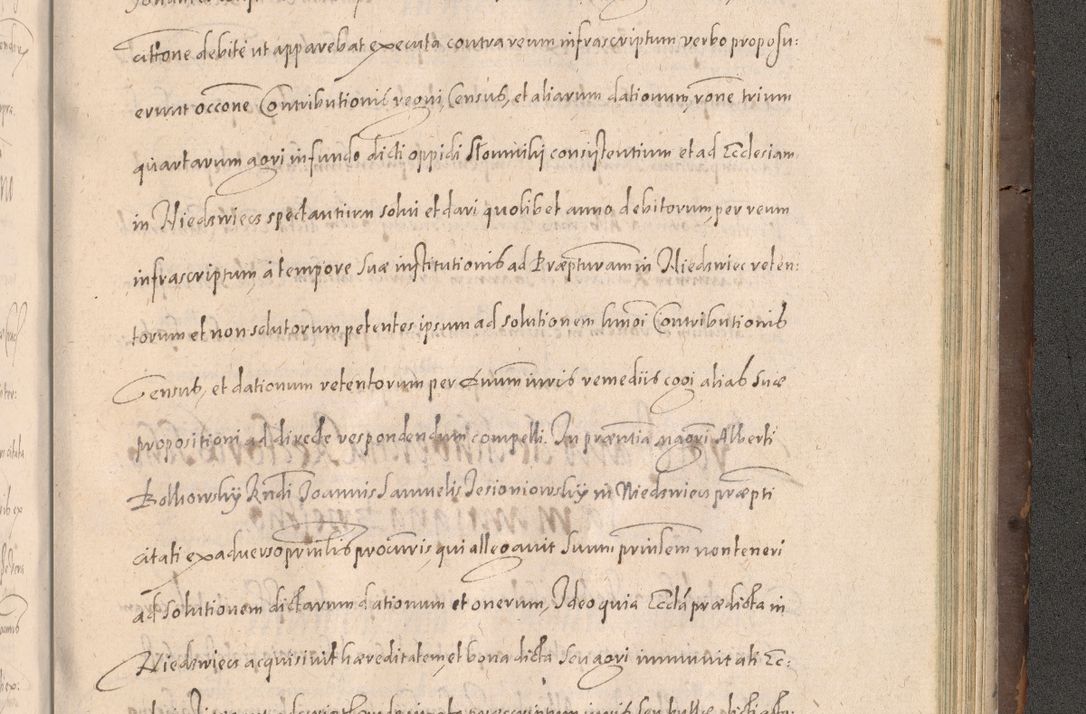 cittione debite ut apparebat executa contra reum infrascriptum verbo proposu:
erunt occone Contributionis regni Census, et aliarum dationum rone trium
quartarum agri in fundo dicti oppidi Slomniki consistentium et ad Ecclesiam
in Niedzwiecz spectantium solui et dari quolibet anno debitorum, per reum
infrascriptum, à tempore suæ institutionis ad Præpturam in Niedzwiec reten:
torum et non solutorum petentes ipsum ad solutionem hmoi Contributionis
Census, et dationum retentorum per iuris remediis cogi alias suæ
propositioni ad directe respondendum compelli. In præntia magri Alberti
Bolkowsky Rndi Joannis Samuelis Jesioniowsky in Niedzwiecz præpti
citati ex adverso prinlis procuris, qui allegavit suum prinlem non teneri
ad solutionem dictarum dationum et onerum, Ideo quia Eccta prædicta in
Niedzwiecz acquisivit hæreditatem et bona dicta seu agri immunit ati Ec: